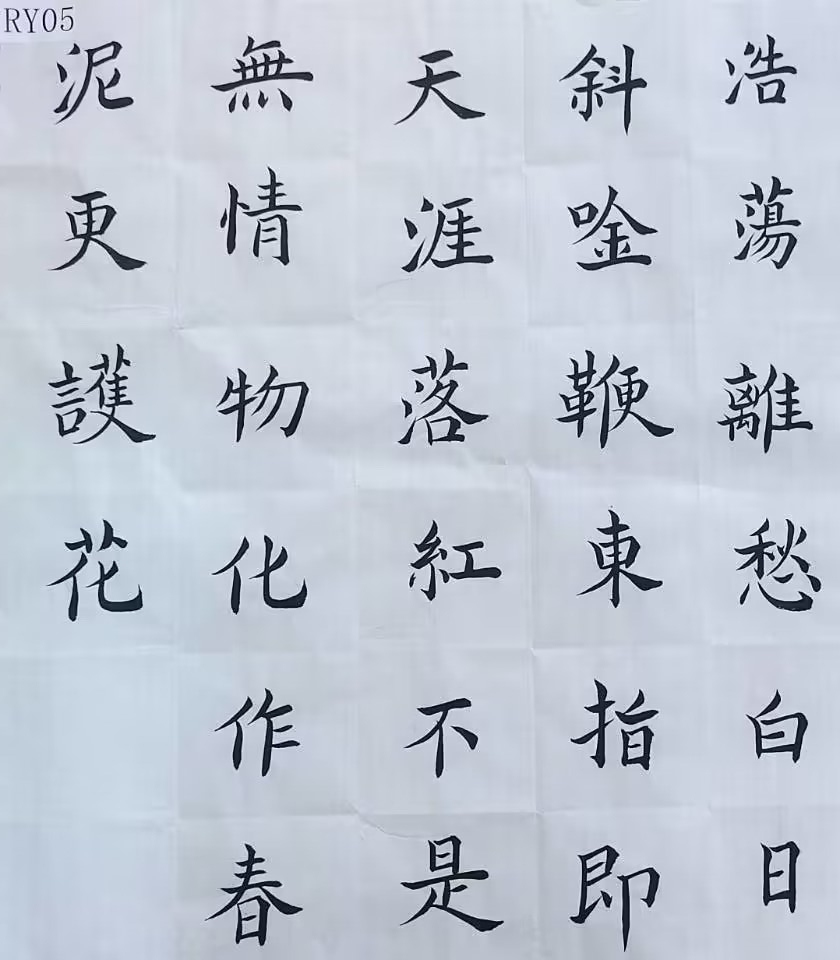 RY05
浩蕩離愁白日
斜唫鞭東指即
天涯落紅不是
無情物化作春
泥更護花